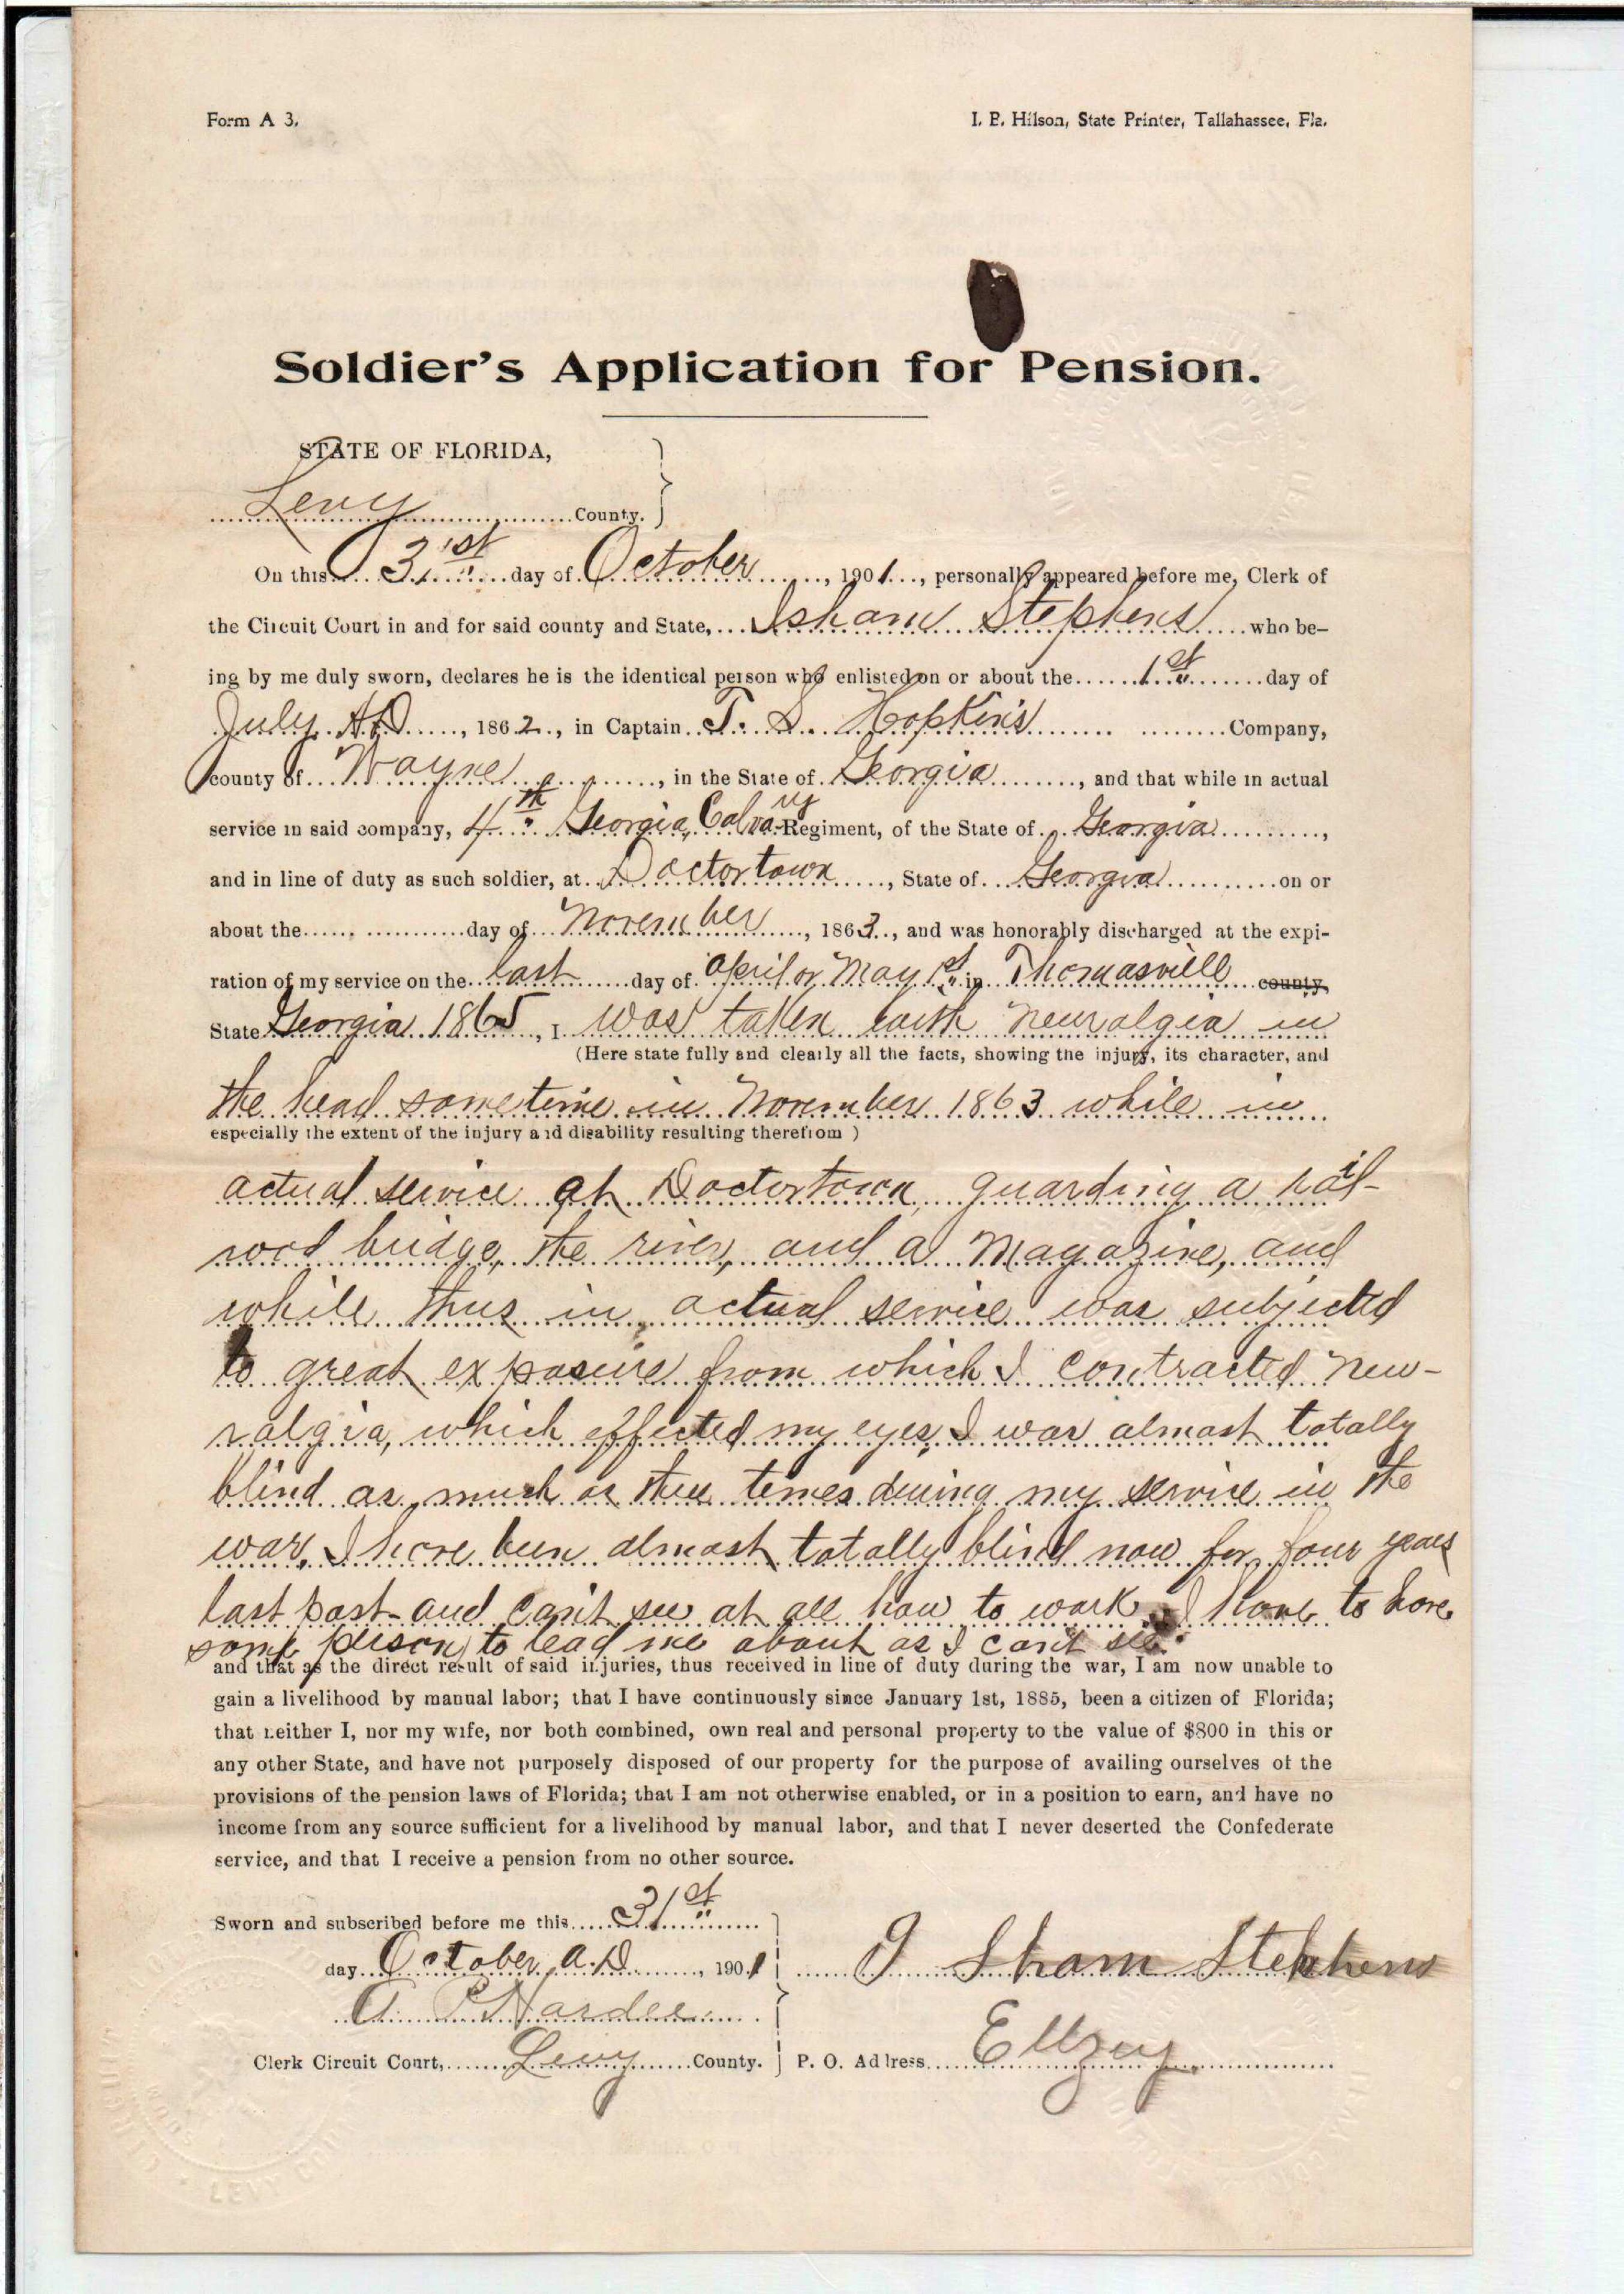 Form A 3.
I. B. Hilson, State Printer, Tallahassee, Fla.
Soldier's Application for Pension.
STATE OF FLORIDA,
Levy County.
On this 31st day of October, 1901, personally appeared before me, Clerk of
the Circuit Court in and for said county and State, Isham Stephens who be-
ing by me duly sworn, declares he is the identical person who enlisted on or about the 1st day of
July A.D, 1862, in Captain T. S. Hopkins Company,
county of Wayne, in the State of Georgia, and that while in actual
service in said company, 4th Georgia Calvary Regiment, of the State of Georgia,
and in line of duty as such soldier, at Doctortown, State of Georgia on or
about the day of November, 1863, and was honorably discharged at the expi-
ration of my service on the last day of April or May 1st in Thomasville county,
State Georgia 1865, I was taken with neuralgia in
(Here state fully and clearly all the facts, showing the injury, its character, and
the head sometime in November 1863 while in
especially the extent of the injury and disability resulting therefrom)
actual service at Doctortown guarding a rail-
rood bridge, the river, and a Magazine, and
while thus in actual service was subjected
to great exposure from which I contracted neu-
ralgia, which effected my eyes, I was almost totally
blind as much as three times during my service in the
war. I have been almost totally blind now for four years
last past and can't see at all how to work. I have to have
some person to lead me about as I can't see.
and that as the direct result of said injuries, thus received in line of duty during the war, I am now unable to
gain a livelihood by manual labor; that I have continuously since January 1st, 1885, been a citizen of Florida;
that neither I, nor my wife, nor both combined, own real and personal property to the value of $800 in this or
any other State, and have not purposely disposed of our property for the purpose of availing ourselves of the
provisions of the pension laws of Florida; that I am not otherwise enabled, or in a position to earn, and have no
income from any source sufficient for a livelihood by manual labor, and that I never deserted the Confederate
service, and that I receive a pension from no other source.
Sworn and subscribed before me this 31st
day October, A.D, 1901
I Sham Stephens
Hardee
Clerk Circuit Court, Levy County.
P. O. Address Ellzey
LEVY COUNTY